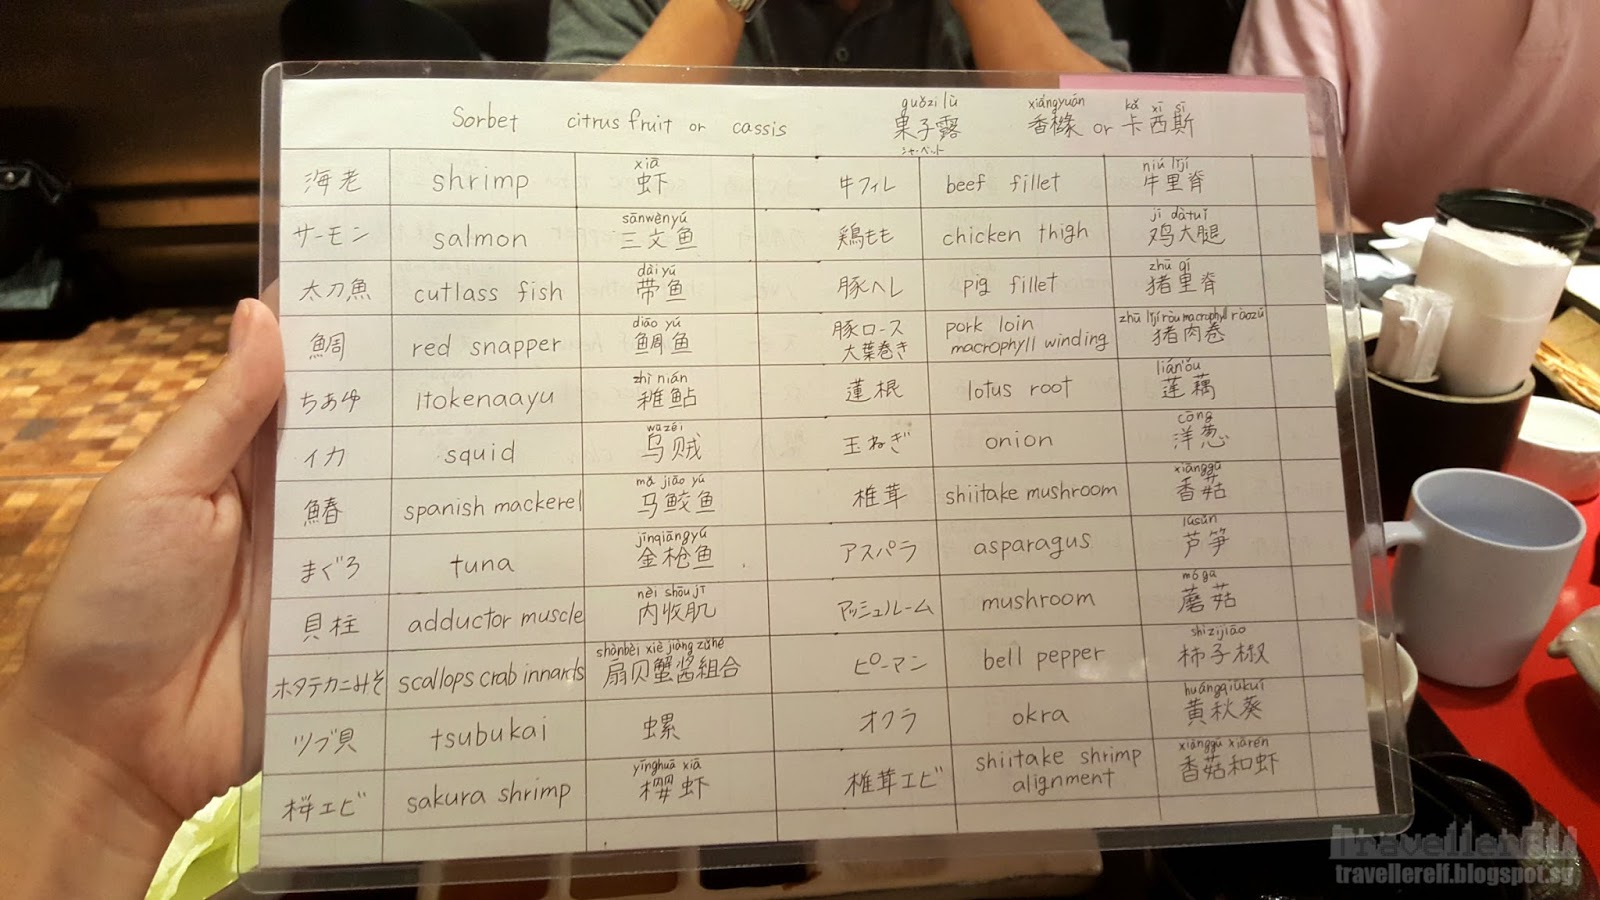 guǒzi lù xiāngyuán kǎ xī sī
Sorbet citrus fruit or cassis 果子露 香橼 or 卡西斯
シャーベット
xiā niú lǐjí
海老 shrimp 虾 牛フィレ beef fillet 牛里脊
sānwènyú jī dàtuǐ
サーモン salmon 三文鱼 鶏もも chicken thigh 鸡大腿
dài yú
太刀魚 cutlass fish 带鱼 豚ヘレ pig fillet 猪里脊
diāo yú
鯛 red snapper 鲷鱼 豚ロース pork loin 猪肉卷
大葉巻き macrophyll winding
zhì nián lián'ǒu
ちあゆ Itokenaayu 稚鲇 蓮根 lotus root 莲藕
wūzéi cōng
イカ squid 乌贼 玉ねぎ onion 洋葱
mǎ jiāo yú xiānggū
鰆 spanish mackerel 马鲛鱼 椎茸 shiitake mushroom 香菇
jīnqiāngyú lúsǔn
まぐろ tuna 金枪鱼 アスパラ asparagus 芦笋
nèi shōu jī mógu
貝柱 adductor muscle 内收肌 マッシュルーム mushroom 蘑菇
shànbèi xiè jiàng zǔhé shìzijiāo
ホタテカニみそ scallops crab innards 扇贝蟹酱組合 ピーマン bell pepper 柿子椒
huángqiūkuí
ツブ貝 tsubukai 螺 オクラ okra 黄秋葵
yīnghuā xiā xiānggū xiārén
桜エビ sakura shrimp 樱虾 椎茸エビ shiitake shrimp 香菇和虾
alignment
TravellerElf
travellerelf.blogspot.sg